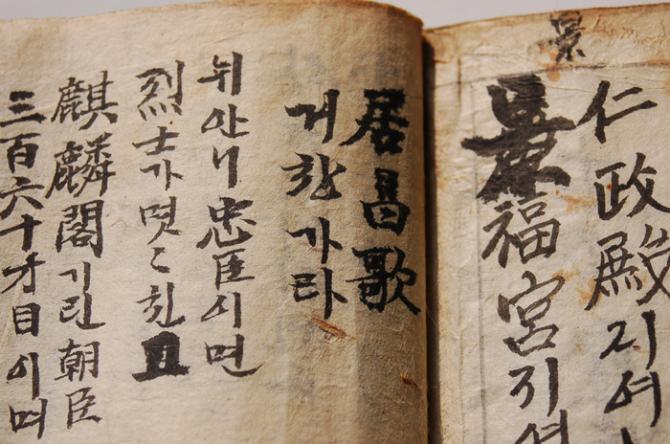 仁政殿지여
景
景福宮지어
居昌歌
거창가라
뉘아니忠臣이면
烈士가몃〃친
麒麟閣기린朝臣
三百六十才目이며